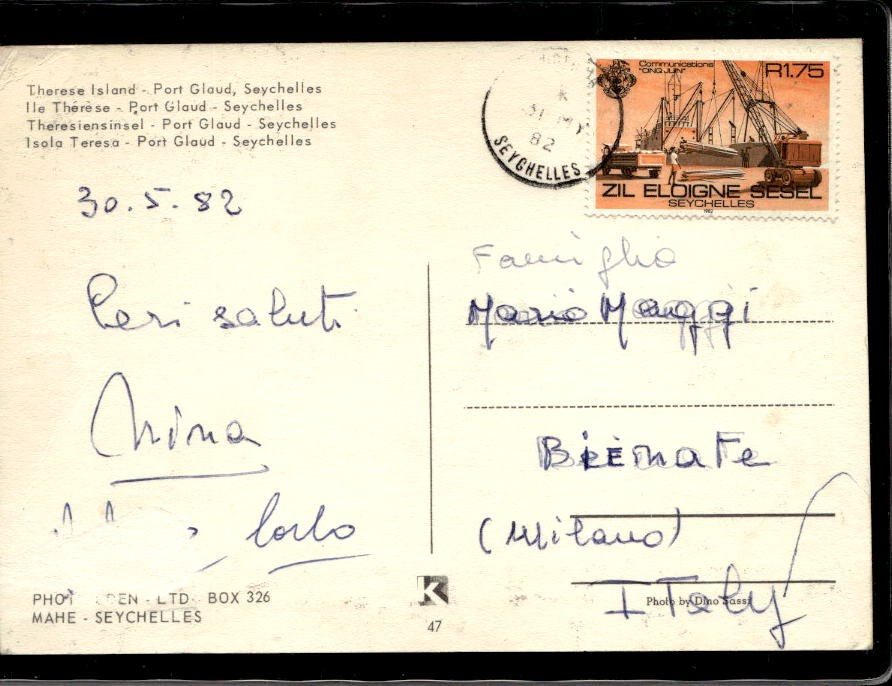 Therese Island - Port Glaud, Seychelles
Ile Thérèse - Port Glaud - Seychelles
Theresiensinsel - Port Glaud - Seychelles
Isola Teresa - Port Glaud - Seychelles
31 MY
82
SEYCHELLES
Communications
"CINQ JUIN"
R1.75
ZIL ELOIGNE SESEL
SEYCHELLES
1982
30.5.82
Cari saluti
Nina
Carlo
Famiglia
Mario Maggi
(Milano)
ITaly
PHOT EDEN - LTD - BOX 326
MAHE - SEYCHELLES
K
47
Photo by Dino Sassi